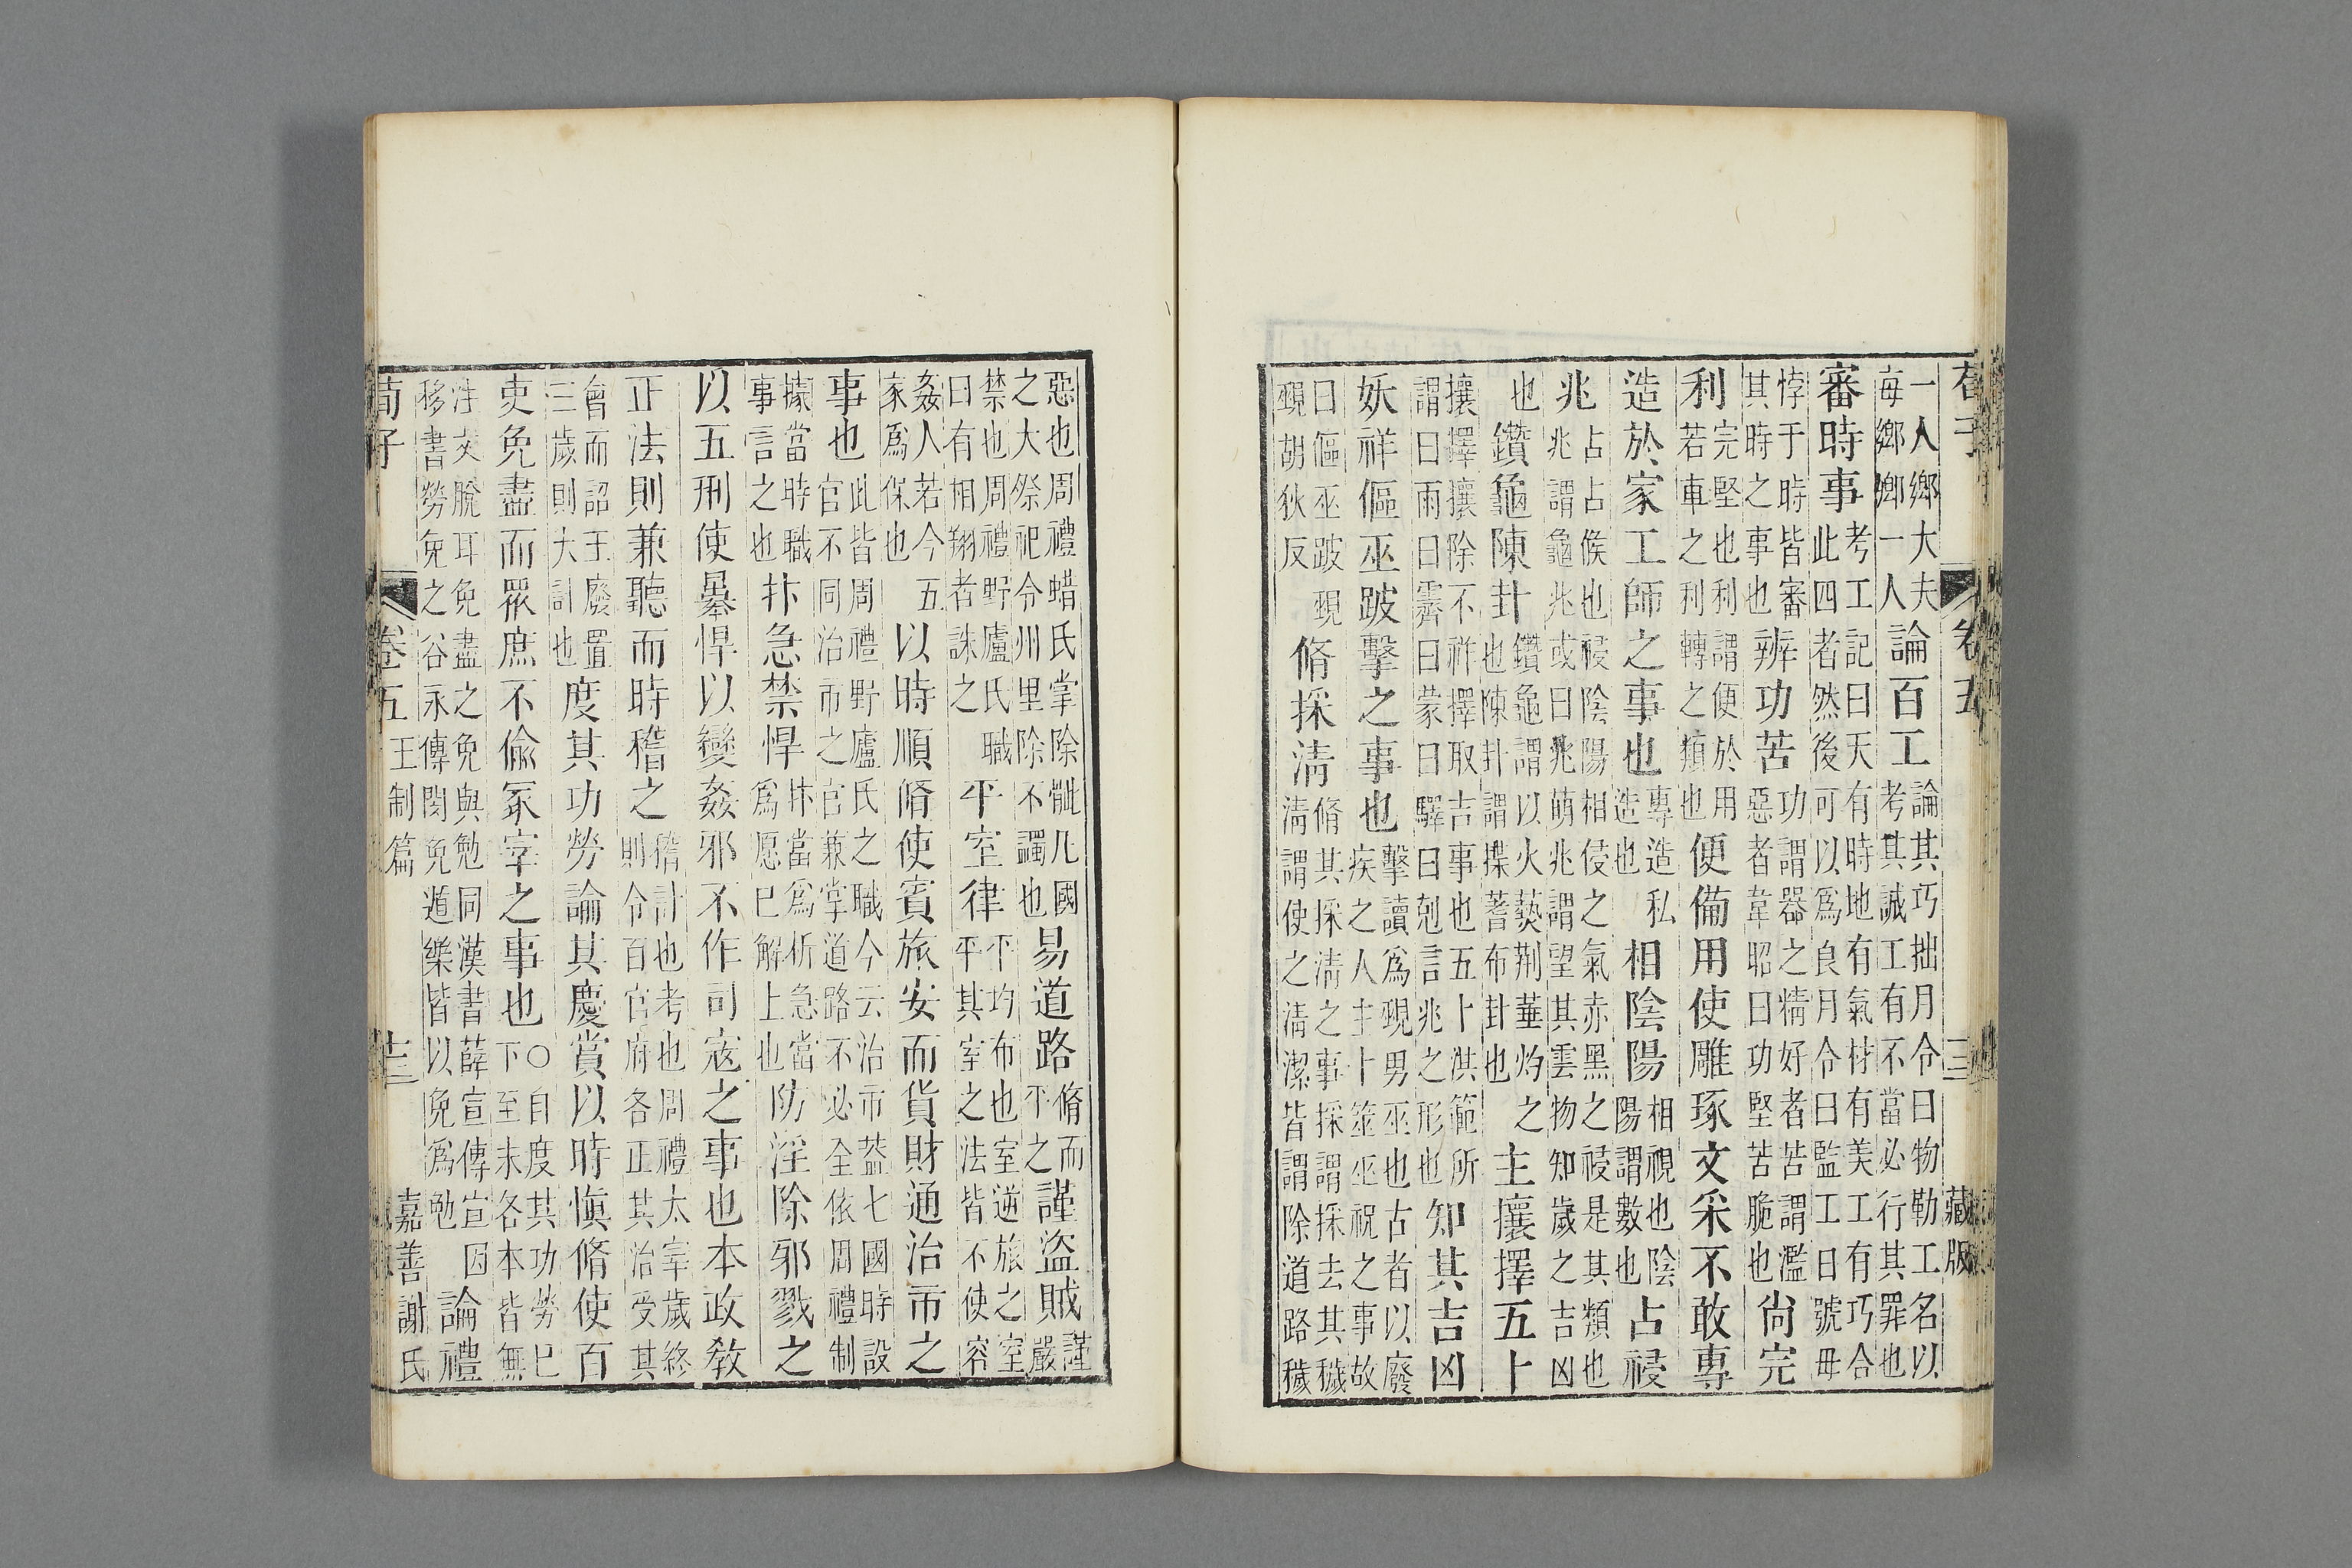 荀子 卷五 三 藏版
一人鄉大夫每鄉鄉一人論百工論其巧拙月令曰物勒工名以考其誠工有不當必行其罪也
審時事考工記曰天有時地有氣材有美工有巧合此四者然後可以爲良月令曰監工日號毋
悖于時皆審其時之事也辨功苦功謂器之精好者苦謂濫惡者韋昭曰功堅苦脆也尙完
利完堅也利謂便於用若車之利轉之類也便備用使雕琢文采不敢專
造於家工師之事也專造私造也相陰陽相視也陰陽謂數也占祲
兆占占候也祲陰陽相侵之氣赤黑之祲是其類也兆謂龜兆或曰兆萌兆謂望其雲物知歲之吉凶
也鑽龜陳卦鑽龜謂以火爇荆菙灼之也陳卦謂揲蓍布卦也主攘擇五卜
攘擇攘除不祥擇取吉事也五卜洪範所謂曰雨曰霽曰蒙曰驛曰剋言兆之形也知其吉凶
妖祥傴巫跛擊之事也擊讀爲覡男巫也古者以廢疾之人主卜筮巫祝之事故
曰傴巫跛覡覡胡狄反脩採淸脩其採淸之事採謂採去其穢淸謂使之淸潔皆謂除道路穢
惡也周禮蜡氏掌除骴凡國之大祭祀令州里除不蠲也易道路脩而平之謹盜賊謹嚴
禁也周禮野廬氏職曰有相翔者誅之平室律平均布也室逆旅之室平其室之法皆不使容
姦人若今五家爲保也以時順脩使賓旅安而貨財通治市之
事也此皆周禮野廬氏之職今云治市蓋七國時設官不同治市之官兼掌道路不必全依周禮制
據當時職事言之也抃急禁悍抃當爲析急當爲愿已解上也防淫除邪戮之
以五刑使暴悍以變姦邪不作司寇之事也本政敎
正法則兼聽而時稽之稽計也考也周禮太宰歲終則令百官府各正其治受其
會而詔王廢置三歲則大計也度其功勞論其慶賞以時愼脩使百
吏免盡而眾庶不偷冢宰之事也○自度其功勞已下至末各本皆無
注文脫耳免盡之免與勉同漢書薛宣傳宣因移書勞免之谷永傳閔免遁樂皆以免爲勉論禮
荀子 卷五 王制篇 十三 嘉善謝氏